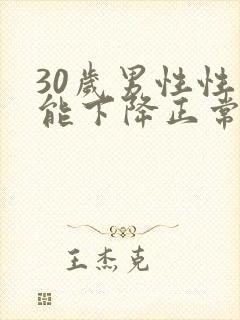 30歲男性性
能下降正常
王杰克